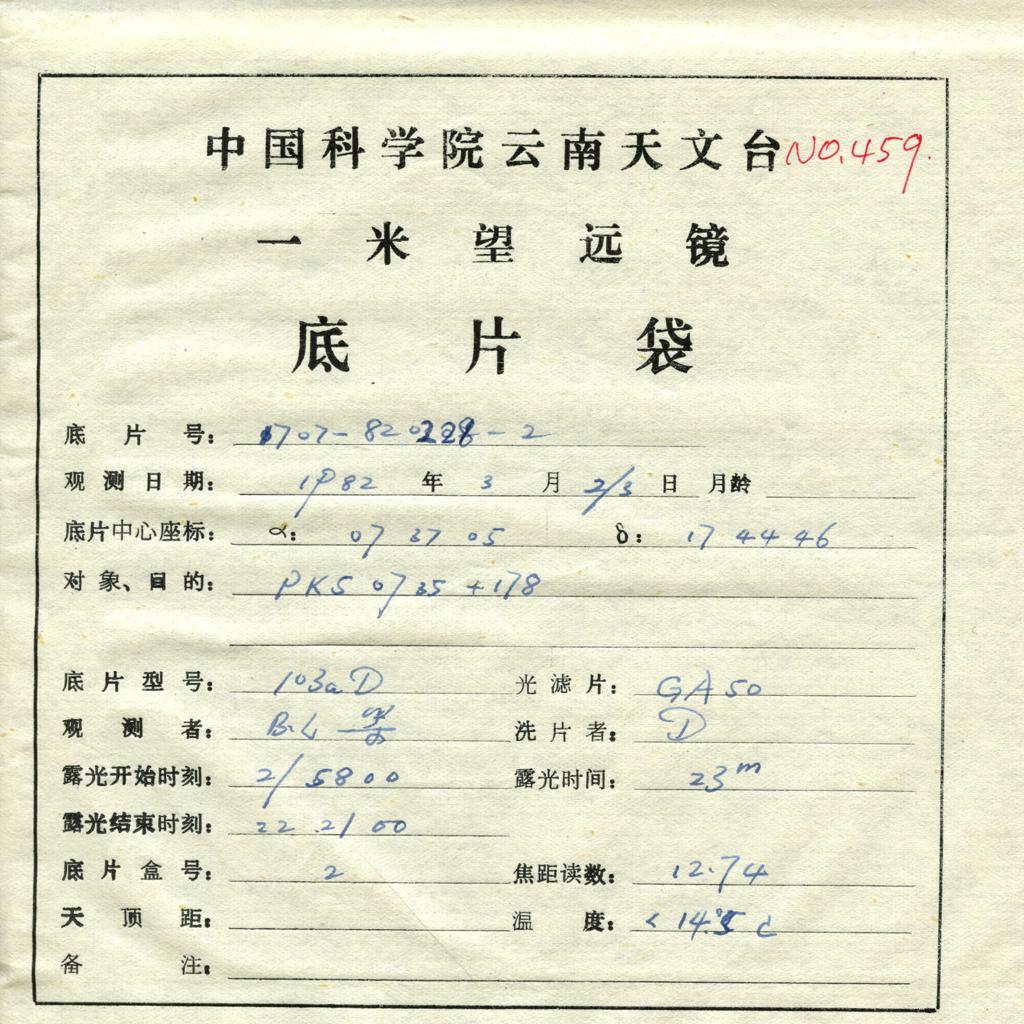 中国科学院云南天文台 NO.459.
一米望远镜
底片袋
底片号: 1707-820228-2
观测日期: 1982 年 3 月 2/3 日 月龄
底片中心座标: α: 07 37 05 δ: 17 44 46
对象、目的: PKS 0735 +178
底片型号: 103aD 光滤片: GA 50
观测者: 洗片者: D
露光开始时刻: 21 5800 露光时间: 23m
露光结束时刻: 22 21 00
底片盒号: 2 焦距读数: 12.74
天顶距: 温度: < 14.5 c
备注: